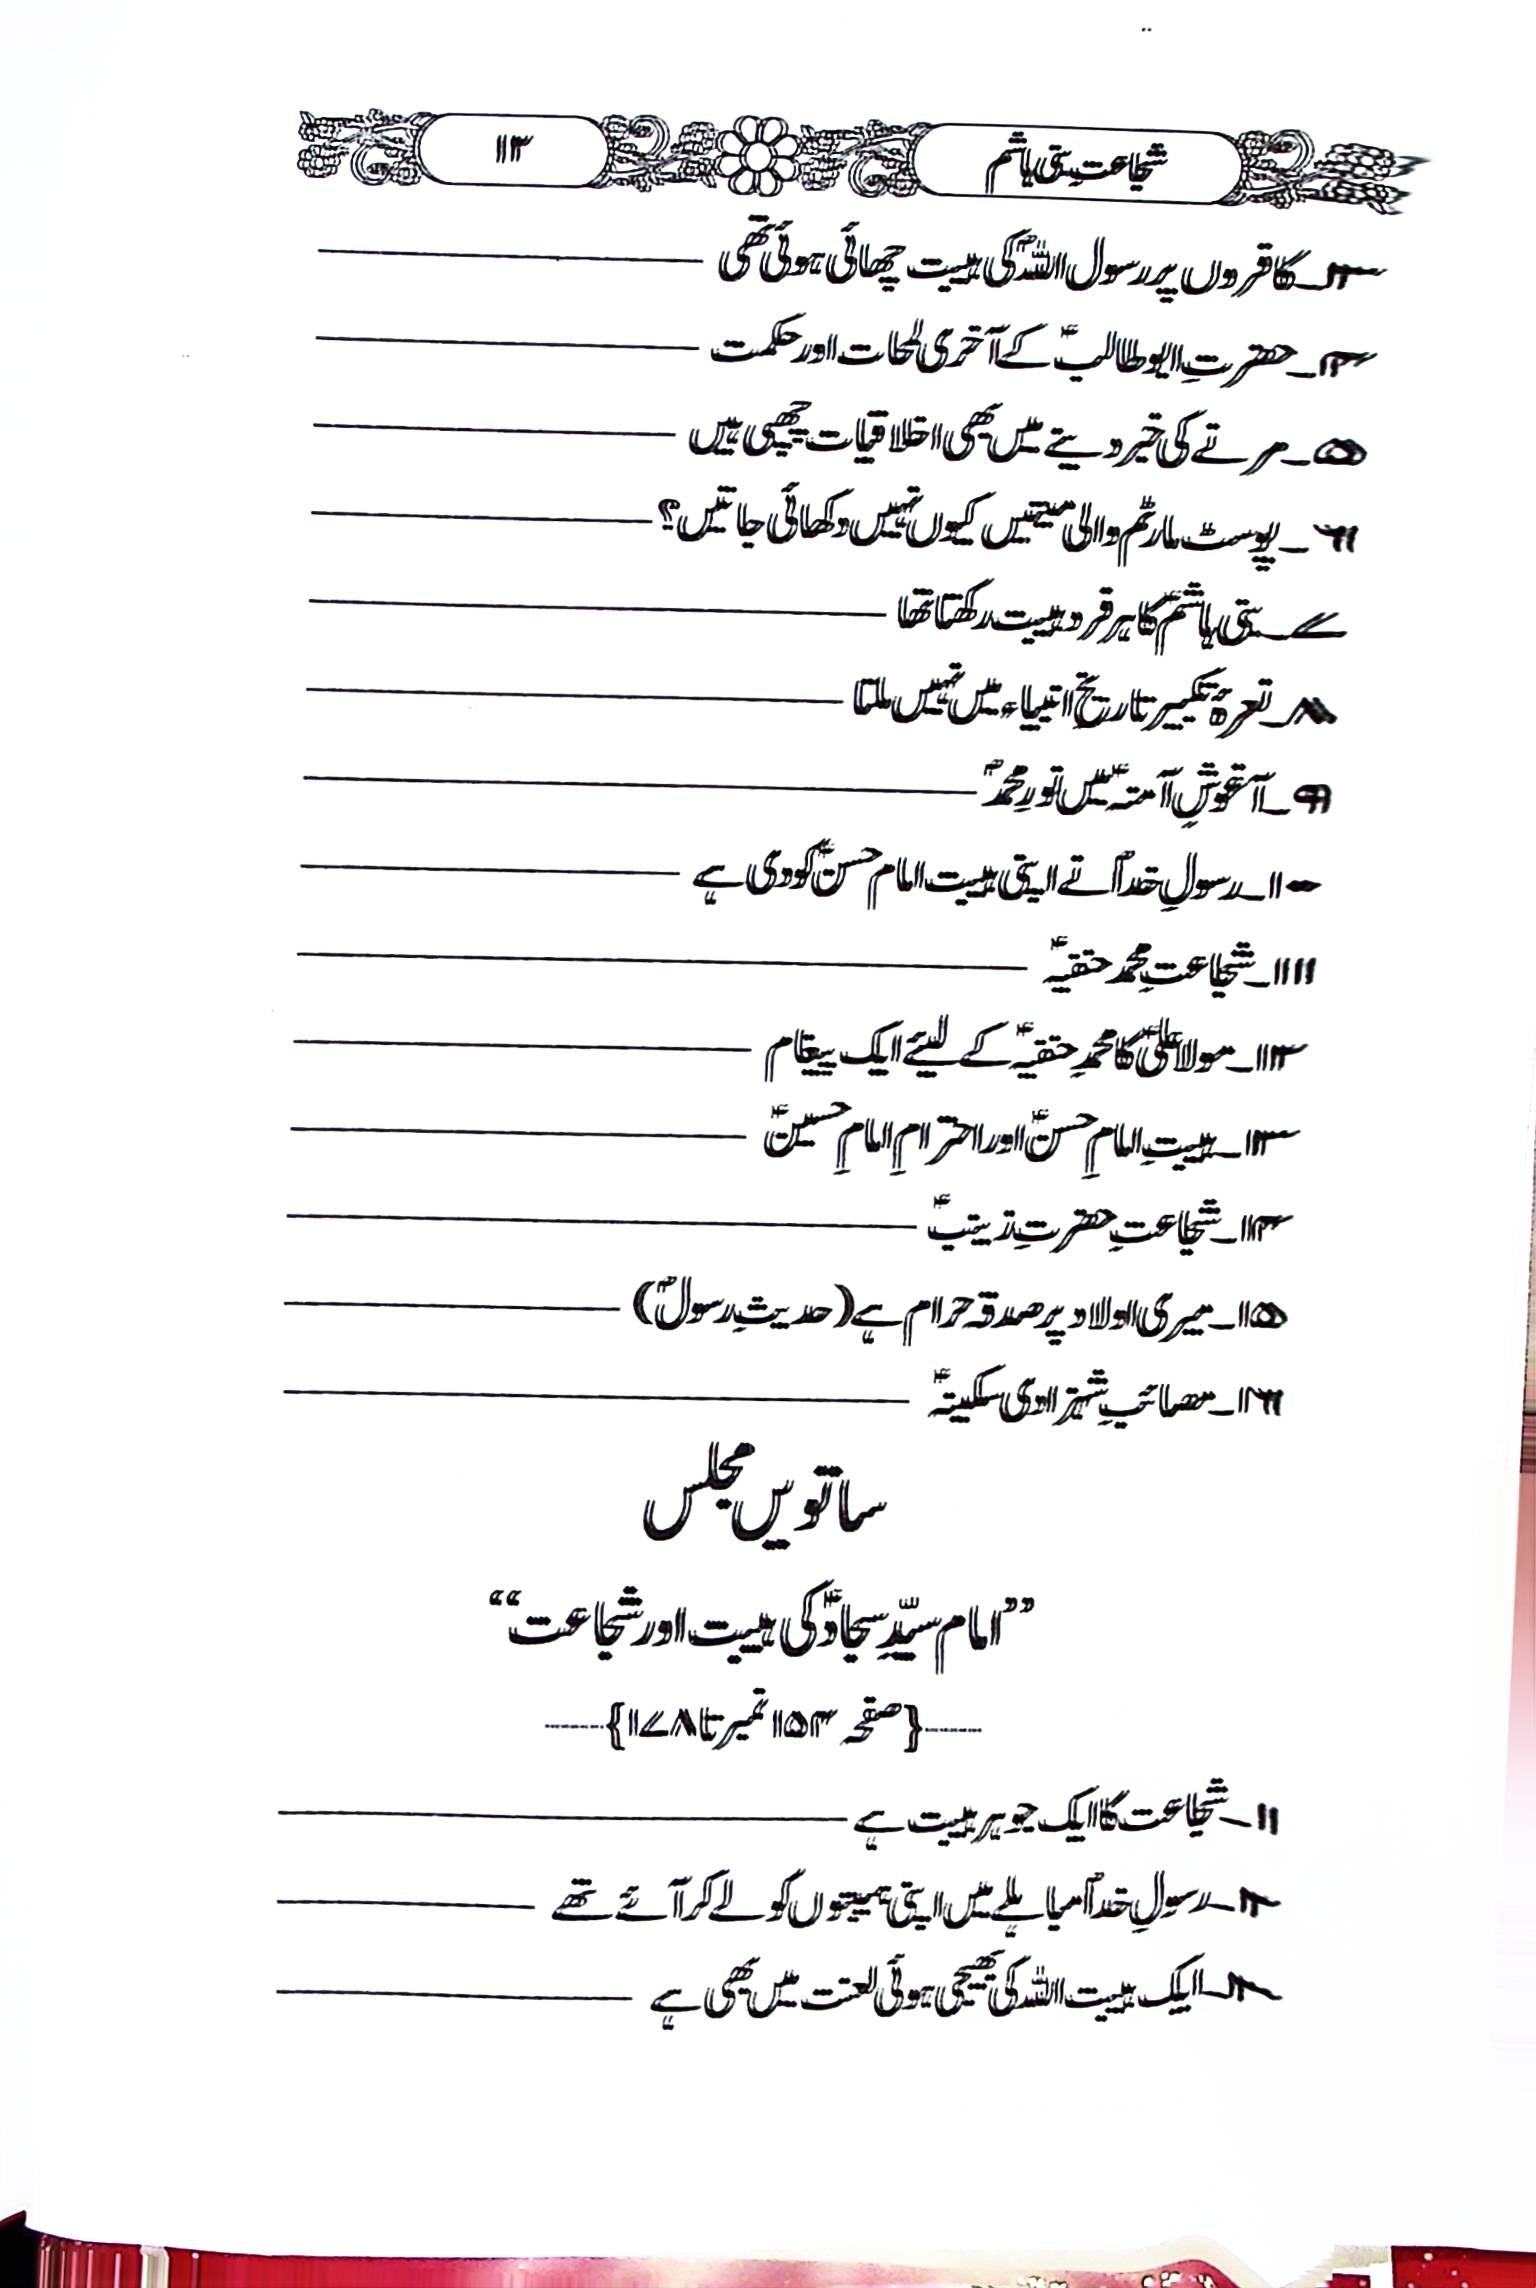 شجاعتِ بنی ہاشم ۱۳
۳۔ کافروں پر رسول اللہؐ کی ہیبت چھائی ہوئی تھی
۴۔ حضرتِ ابوطالبؑ کے آخری لمحات اور حکمت
۵۔ مرنے کی خبر دینے میں بھی اخلاقیات چھپی ہیں
۶۔ پوسٹ مارٹم والی میتیں کیوں نہیں دکھائی جاتیں؟
۷۔ بنی ہاشمؑ کا ہر فرد ہیبت رکھتا تھا
۸۔ نعرۂ تکبیر تاریخِ انبیاء میں نہیں ملتا
۹۔ آغوشِ آمنہؑ میں نورِ محمدؐ
۱۰۔ رسولِ خداؐ نے اپنی ہیبت امام حسنؑ کو دی ہے
۱۱۔ شجاعتِ محمد حنفیہؑ
۱۲۔ مولا علیؑ کا محمدِ حنفیہؑ کے لیئے ایک پیغام
۱۳۔ ہیبتِ امامِ حسنؑ اور احترامِ امامِ حسینؑ
۱۴۔ شجاعتِ حضرتِ زینبؑ
۱۵۔ میری اولاد پر صدقہ حرام ہے (حدیثِ رسولؐ)
۱۶۔ مصائبِ شہزادی سکینہؑ
ساتویں مجلس
”امام سیّدِ سجادؑ کی ہیبت اور شجاعت“
{صفحہ ۱۵۴ نمبر تا ۱۷۸}
۱۔ شجاعت کا ایک جوہر ہیبت ہے
۲۔ رسولِ خداؐ مباہلے میں اپنی ہیبتوں کو لے کر آئے تھے
۳۔ ایک ہیبت اللہ کی بھیجی ہوئی لعنت میں بھی ہے